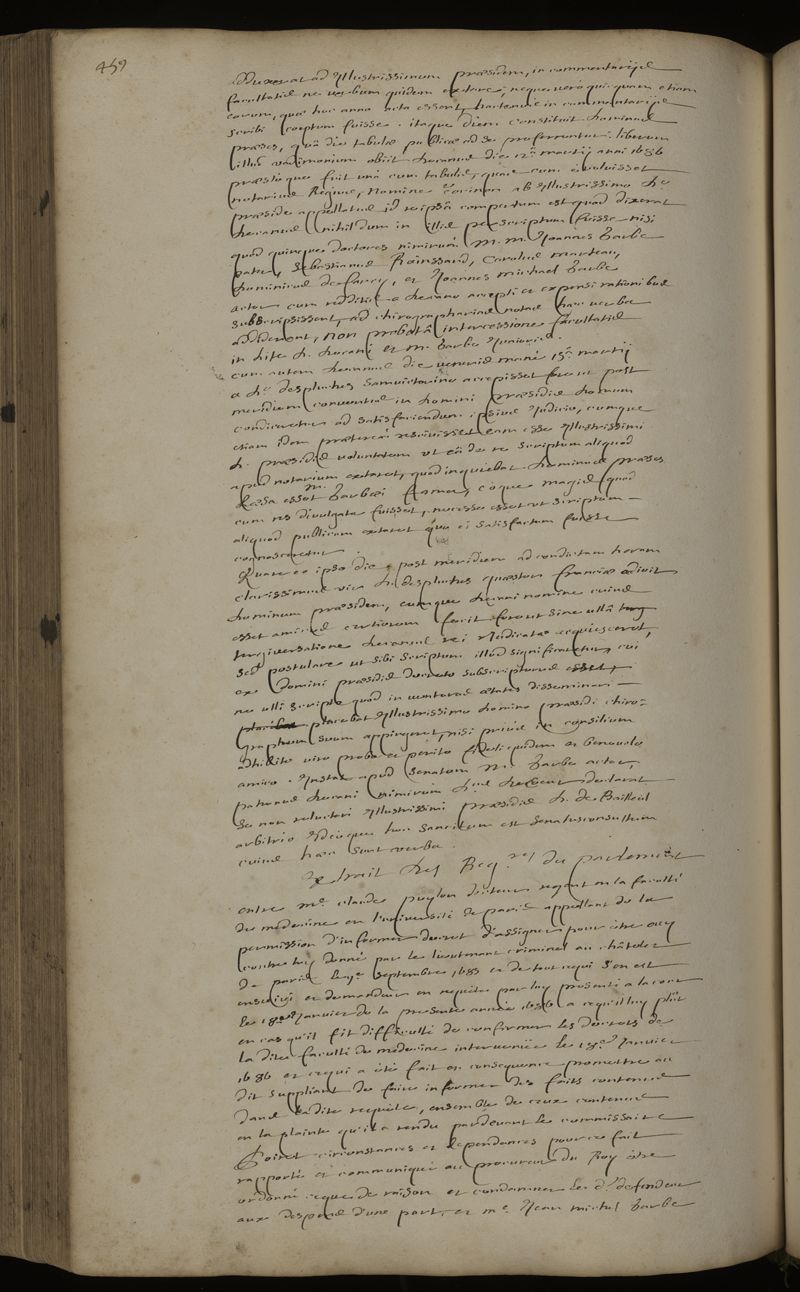 459
adduxerat ad Illustrissimum præsidem, in commentarijs
facultatis ne verbum quidem extare, neque vero quicquam etiam
eorum, quæ hoc anno acta essent, hactenus in commentarijs
scribi coeptum fuisse. itaque diem constituit dominus
præses, quâ die tabulæ publicæ ad se proferrentur. liberum
illud vadimonium obiit decanus die 12â martij anni 1686
præstoque fuit unâ cum tabulis, quas cum evoluisset
notarius Regius, nomine ab Illustrissimo Do
præside appellatus id reipsâ compertum est quod dixerat
decanus nihil dum in illis perscriptum fuisse nisi
quod quinque doctores nimirum M. M. Joannes Barbe
pater, Sebastianus Rainssard, Carolus marteau,
Dominicus de farcy, et Joannes michael Barbe
actor cum redditis a decano accepti et expensi rationibus
subscripsissent, ad chirographarias notas hæc verba
addiderant, non probatâ intercessione facultatis
in lite D. decani et M. Barbe Junioris.
cum autem decanus die veneris mane 15â martij
a Do desplactes Samvictorino accepisset fore ut post
meridiem conventus in domini præsidis domum
condiceretur ad satisfaciendum ipsius Judicio, cumque
etiam idem præterea rescivisset eam esse Illustrissimi
D. præsidis voluntatem ut eâ de re scriptum aliquod
apud notarium extaret, quod inquiebat dominus præses
læsa esset M. Barbæi fama, eoque magis quod
cum res divulgata fuisset, necesse esset ut scriptum
aliquod publicum extaret quo ei satisfactum fuisse
cognosceretur.
Quare eo ipso die post meridiem ad condictam horam
clarissimus vir D. desplactes quæstor franciæ adivit
dominum præsidem, eumque decani nomine cuius
esset amicus certiorem facit fore ut sine ullâ terg
tergiversatione decanus rei Judicatæ acquiesceret,
sed postulare ut sibi scriptum illud significaretur, cui
ex domini præsidis decreto subscripturus esset,
ne ulli scripto quod in venturas ætates disseminari
placebat Illustrissimo domino præsidi chiro=
graphum suum appingeret, nisi prius in consilium
adhibito viro probo et perito fideli quidem et benevolo
amico. Instat apud Senatum M. Barbe actor,
patronus decani nimirum declarat
se non reluctari Illustrissimi præsidis D. de Bailleul
arbitrio Ideoque hoc sancitum est senatusconsultum
cuius hæc sunt verba.
Extrait des Regres du parlement
entre me. claude puylon docteur regent en la faculté
de medecine en l'université de paris appellant de la
permission d'informer decret d'assigner pour être ouy
contre luy donné par le lieutenant criminel au châtelet
de paris le septembre 1685 et de tout ce qui s'en est
ensuivi et demandeur en requête par luy presentée a la cour
le 18e Janvier de la presente année 1686 a ce qu'il luy plût
en cas qu'il fit difficulté de confirmer les decrets de
la dite faculté de medecine intervenües le 15e Janvier
1686 et ce qui a été fait en consequence permettre au
dit suppliant de faire informer des faits contenus
dans la dite requête, ensemble de ceux contenus
en la plainte qu'il a rendu pardevant le commissaire
Poiret circonstances et dependances pour ce fait
rapporté et communiqué au procureur du Roy être
ordonné ce que de raison et condamner les d. defendeur
aux despens d'une part, et me. Jean michel Barbe